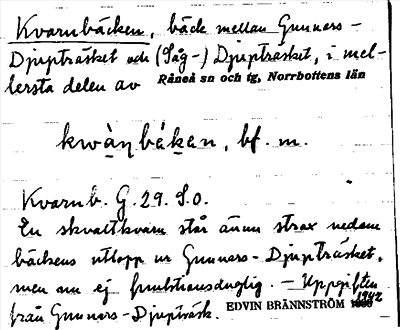 Kvarnbäcken, bäck mellan Gunners-
Djupträsket och (Såg-) Djupträsket, i mel-
lersta delen av Råneå sn och tg, Norrbottens län
kwàṇbäkan, bf. m.
Kvarnb. G. 29. S.O.
En skvaltkvarn står ännu strax nedom
bäckens utlopp ur Gunners-Djupträsket,
men är ej funktionsduglig. – Uppgiften
från Gunners-Djupträsk. EDVIN BRÄNNSTRÖM 1942